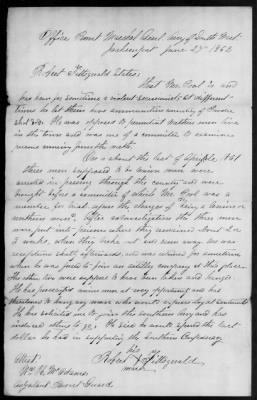 Office Provost Marshal Genl. Army of South West
Jacksonport June 23rd 1862
Robert Fitzgerald States:
That Mr. Pool is and
has been for sometime a violent secessionist at different
times he has been
He was opposed to permit northern men live
in the town and was one of a committee to examine
persons coming from the north
On or about the last of April 1861
three men supposed to be union men were
arrested in passing through this county and were
brought before a committee of which Mr Pool was a
member for trial upon the charge of "being Lincoln or
northern men". After investigation the three men
were put into prison where they remained about 2 or
3 weeks, when they broke out and run away. One was
recaptured shortly afterwards, and was released for sometime
when he was made to join an artillery company at this place.
The other two was supposed to have been taken and hanged.
He has persecuted union men at every opportunity and has
threatened to hang any man who would express loyal sentiments
He has solicited me to join the southern Army and has
induced others to go. He said he would spend the last
dollar he had in supporting the Southern Confederacy
his
Robert X Fitzgerald
mark
Attest:
Wm. H. McAdams
Sergeant Provost Guard